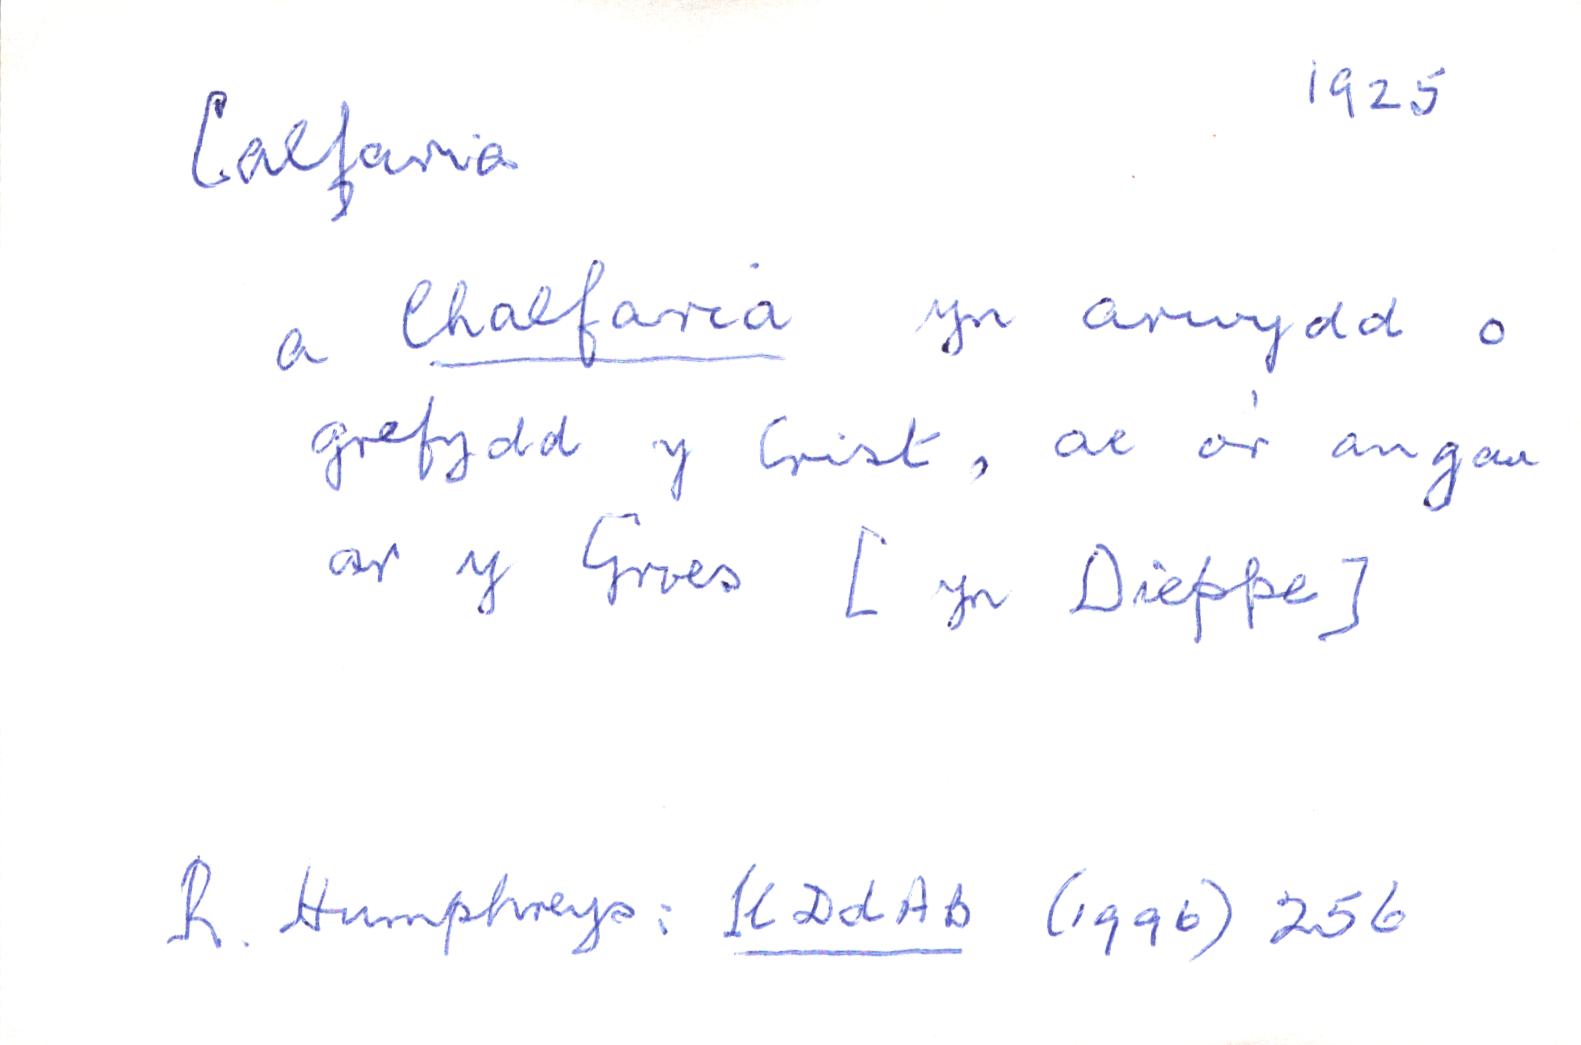 1925
Calfaria
a Chalfaria yn arwydd o
grefydd y Crist, ac o'r angau
ar y Groes [yn Dieppe]
R. Humphreys: DdAB (1996) 256